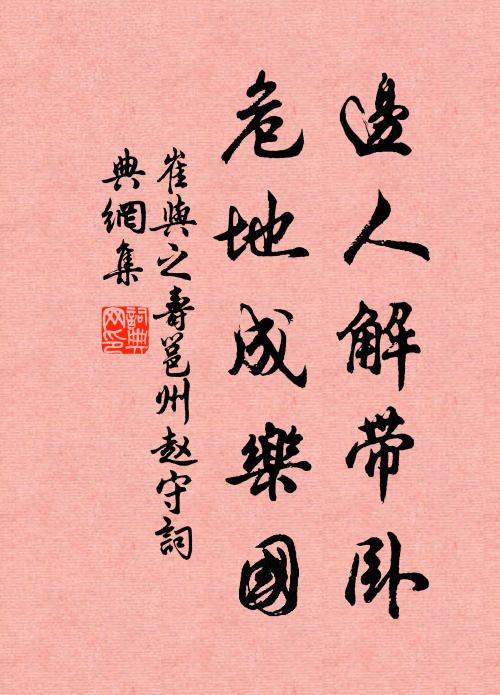 邊人解帶卧
危地成樂國
崔與之壽邕州赵守詞
典網集
詞典网印